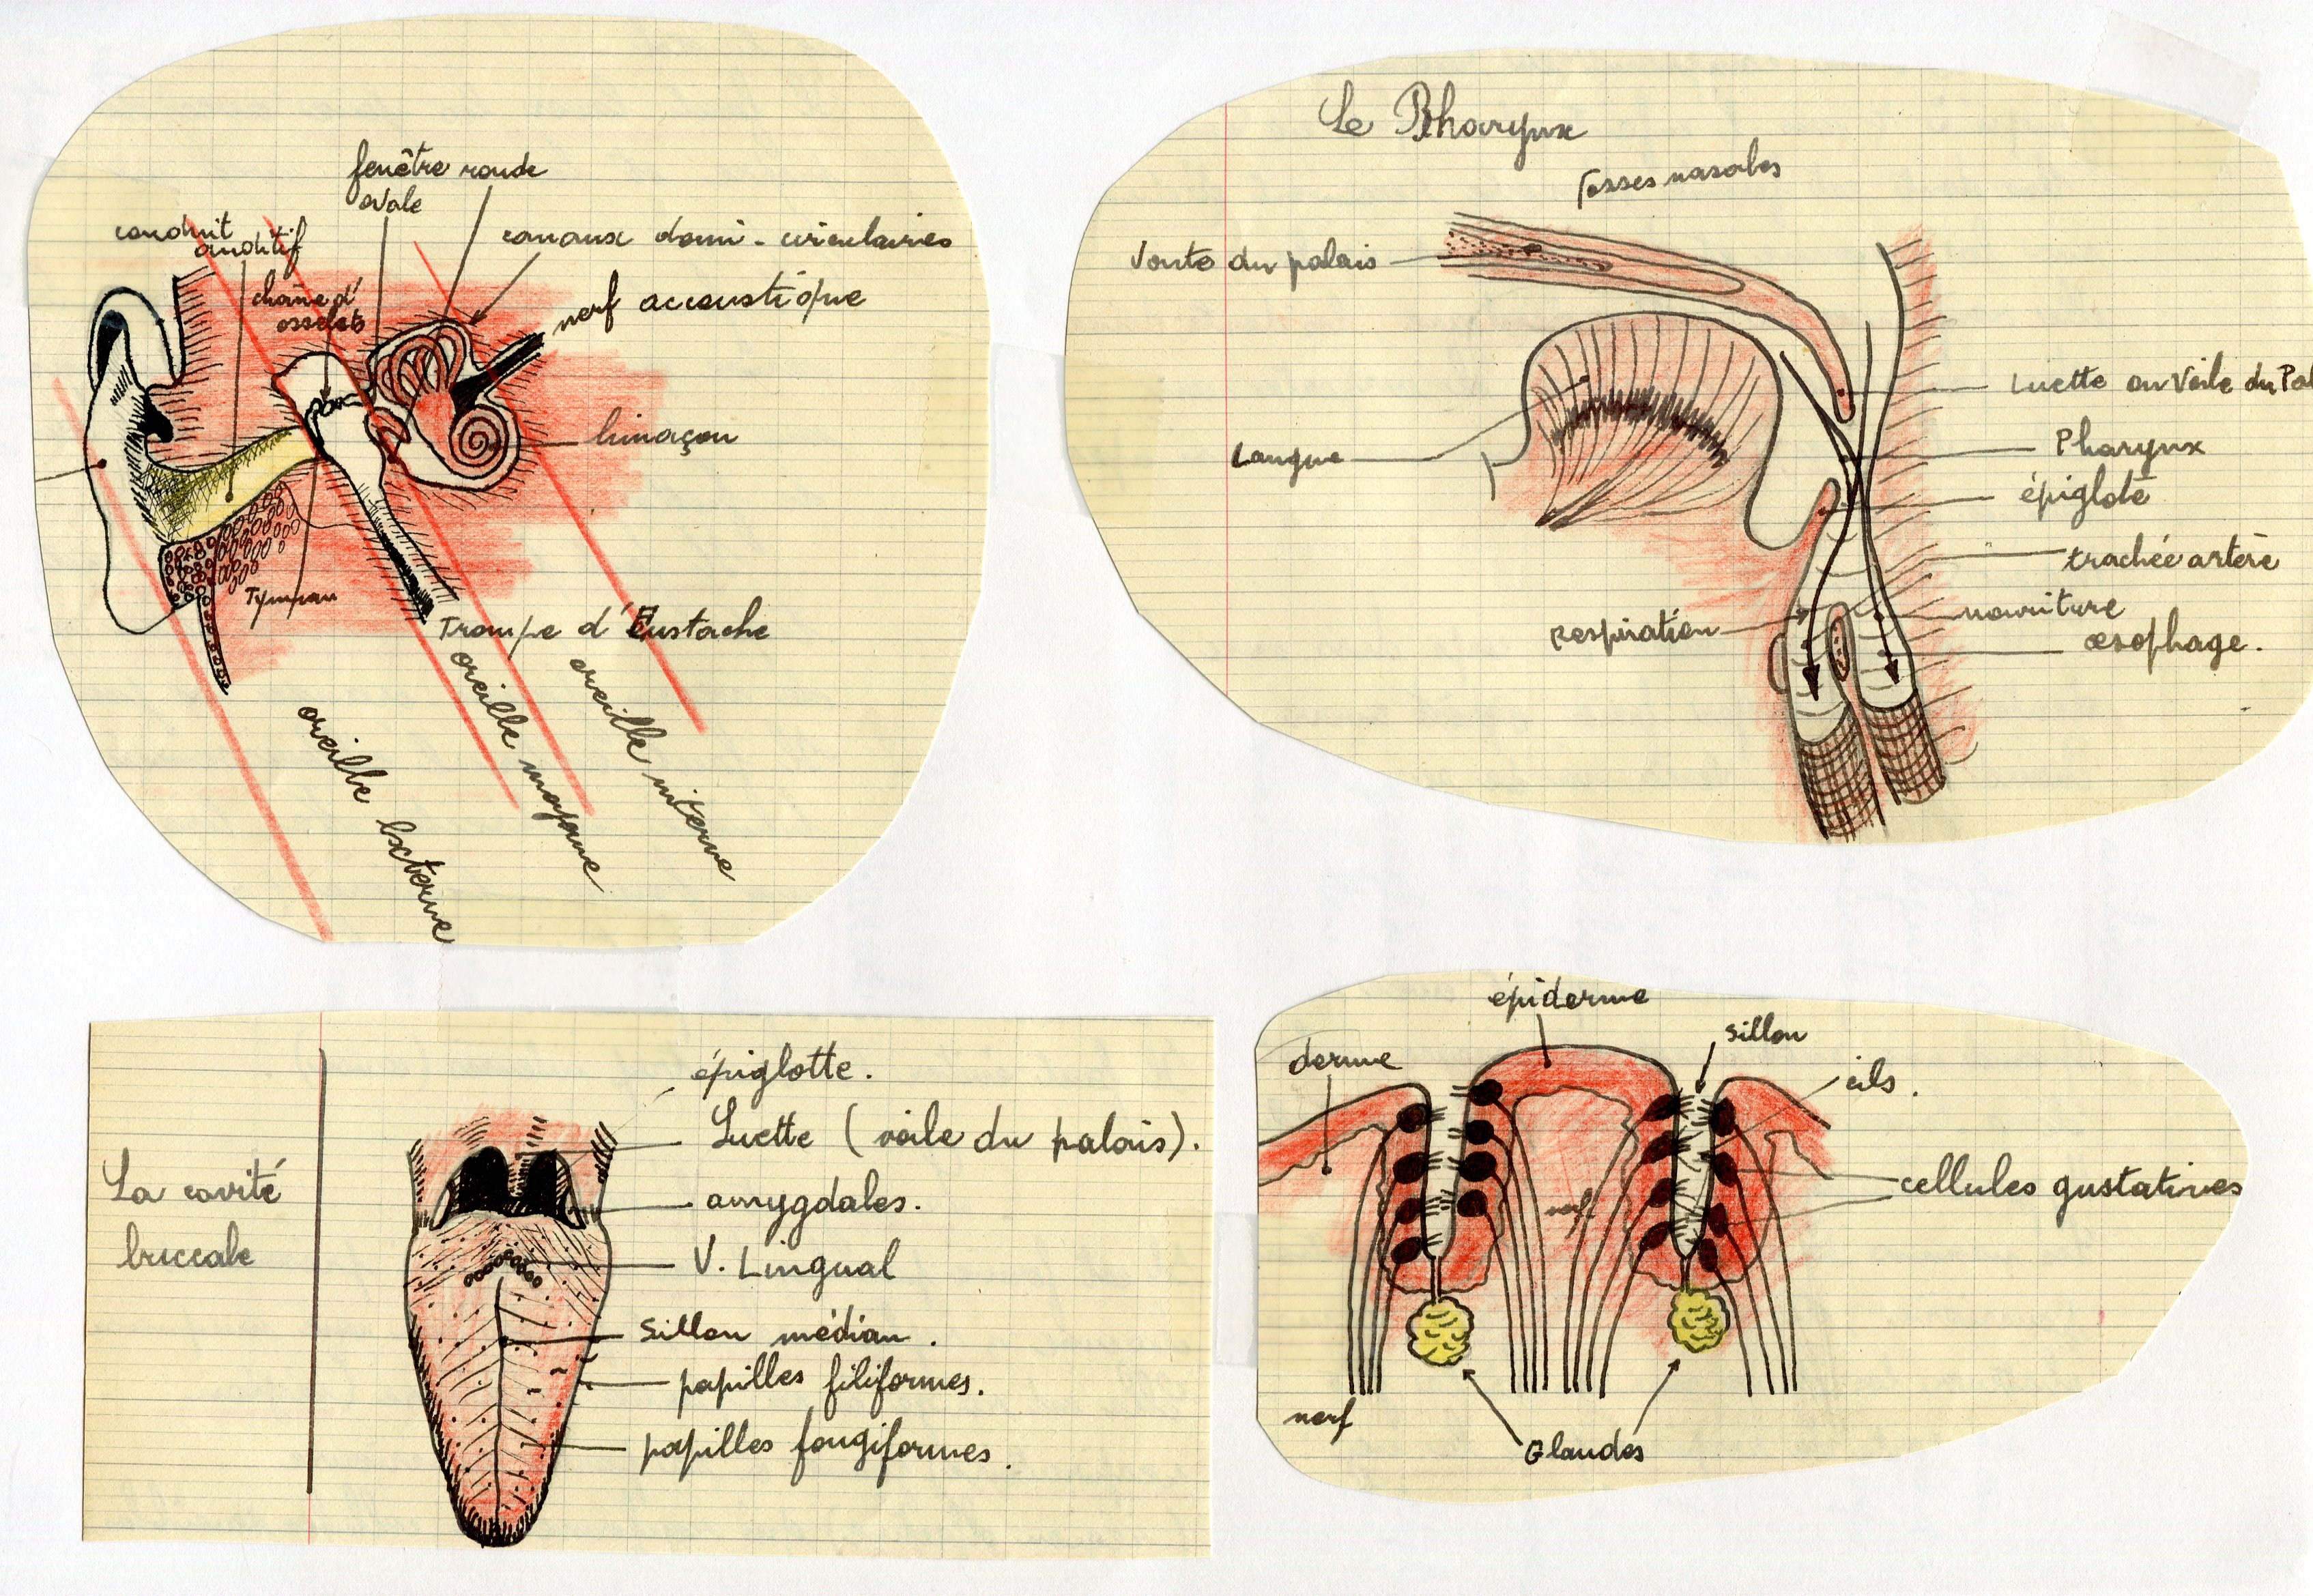 fenêtre ronde
ovale
conduit
auditif
canaux demi-circulaires
chaîne d'
osselets
nerf accoustique
limaçon
Tympan
Trompe d'Eustache
oreille externe
oreille moyenne
oreille interne
Le Pharynx
fosses nasales
Voute du palais
Luette ou Voile du Pal
Langue
Pharynx
épiglote
trachée artère
respiration
nouriture
œsophage.
La cavité
buccale
épiglotte.
Luette (voile du palais).
amygdales.
V. Lingual
Sillon médian.
papilles filiformes.
papilles fongiformes.
épiderme
sillon
derme
cils.
cellules gustatives
nerf
nerf
Glandes